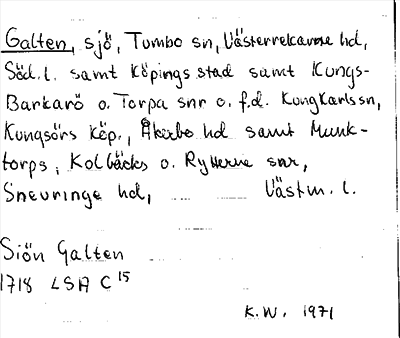 Galten, sjö, Tumbo sn, Västerrekarne hd,
Söd. l. samt Köpings stad samt Kungs-
Barkarö o. Torpa snr o. f.d. Kung Karls sn,
Kungsörs köp., Åkerbo hd samt Munk-
torps, Kolbäcks o. Rytterne snr,
Snevringe hd, Västm. l.
Siön Galten
1718 LSA C 15
K.W. 1971